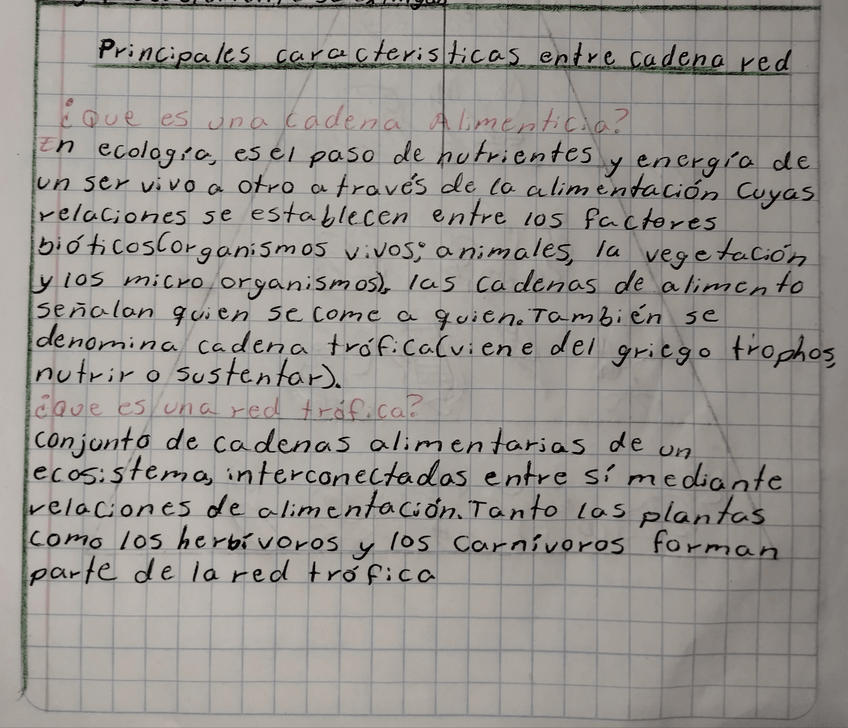 Principales caracteristicas entre cadena red
¿Que es una cadena Alimenticia?
En ecología, es el paso de nutrientes y energía de
un ser vivo a otro a través de la alimentación Cuyas
relaciones se establecen entre los factores
bióticos(organismos vivos; animales, la vegetación
y los micro organismos), las cadenas de alimento
señalan quien se come a quien. También se
denomina cadena trófica(viene del griego trophos,
nutrir o sustentar).
¿Que es una red trófica?
conjunto de cadenas alimentarias de un
ecosistema, interconectadas entre sí mediante
relaciones de alimentación. Tanto las plantas
como los herbívoros y los carnívoros forman
parte de la red trófica